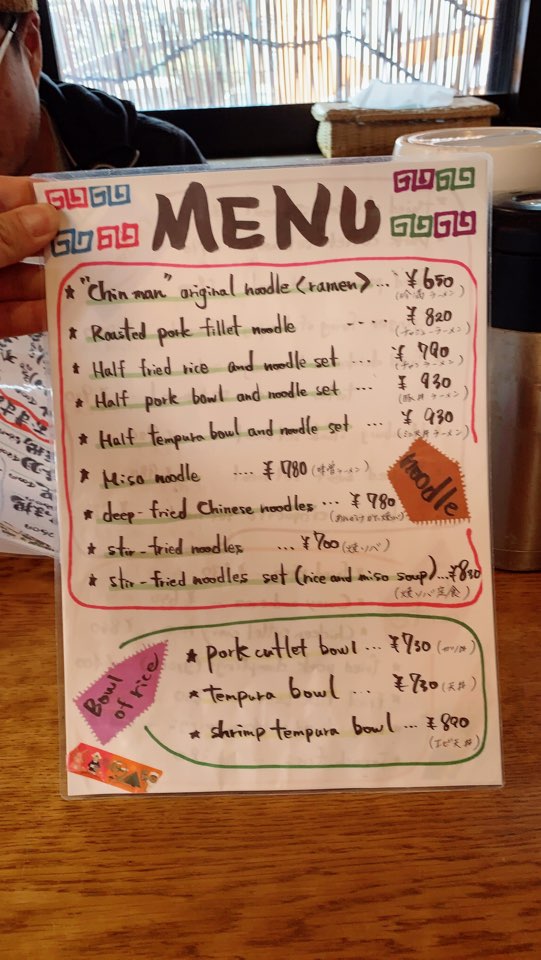 MENU
★ "Chin man" original noodle <ramen> ... ¥650
(吟満ラーメン)
★ Roasted pork fillet noodle .... ¥820
(チャーシューラーメン)
★ Half fried rice and noodle set ... ¥790
★ Half pork bowl and noodle set ... ¥930
(豚丼ラーメン)
★ Half tempura bowl and nodle set ... ¥930
(ミニ天丼ラーメン)
★ Miso noodle ... ¥780 (味噌ラーメン)
★ deep-fried Chinese noodles ... ¥780
★ stir-fried noodles ... ¥700 (焼ソバ)
★ stir-fried noodles set (rice and miso soup) ... ¥830
(焼ソバ定食)
noodle
Bowl of rice
★ pork cutlet bowl ... ¥730 (カツ丼)
★ tempura bowl ... ¥730 (天丼)
★ shrimp tempura bowl ... ¥890
(エビ天丼)